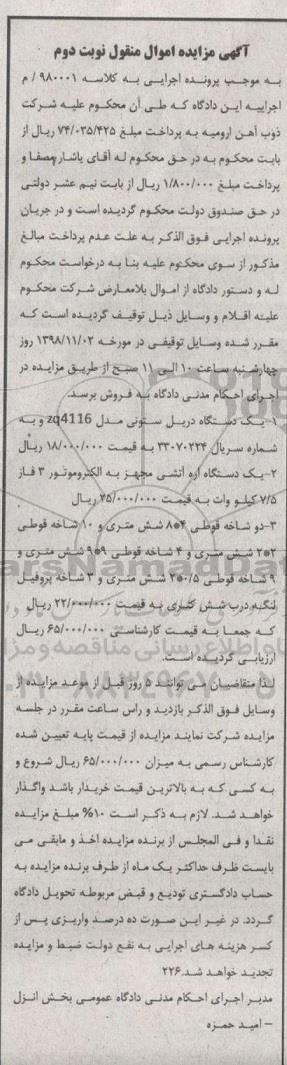 آگهی مزایده اموال منقول نوبت دوم
به موجب پرونده اجرایی به کلاسه ۹۸۰۰۰۱ / م
اجراییه این دادگاه که طی آن محکوم علیه شرکت
ذوب آهن ارومیه به پرداخت مبلغ ۷۴/۰۳۵/۴۲۵ ریال از
بابت محکوم به در حق محکوم له آقای یاشار مصفا و
پرداخت مبلغ ۱/۸۰۰/۰۰۰ ریال از بابت نیم عشر دولتی
در حق صندوق دولت محکوم گردیده است و در جریان
پرونده اجرایی فوق الذکر به علت عدم پرداخت مبالغ
مذکور از سوی محکوم علیه بنا به درخواست محکوم
له و دستور دادگاه از اموال بلامعارض شرکت محکوم
علیه اقلام و وسایل ذیل توقیف گردیده است که
مقرر شده وسایل توقیفی در مورخه ۱۳۹۸/۱۱/۰۲ روز
چهارشنبه ساعت ۱۰ الی ۱۱ صبح از طریق مزایده در
اجرای احکام مدنی دادگاه به فروش برسد.
۱-یک دستگاه دریل ستونی مدل zq4116 و به
شماره سریال ۳۳۰۷۰۲۲۴ به قیمت ۱۸/۰۰۰/۰۰۰ ریال
۲-یک دستگاه اره آتشی مجهز به الکتروموتور ۳ فاز
۷/۵ کیلو وات به قیمت ۲۵/۰۰۰/۰۰۰ ریال
۳-دو شاخه قوطی ۴*۸ شش متری و ۱۰ شاخه قوطی
۲*۲ شش متری و ۴ شاخه قوطی ۹*۹ شش متری و
۹ شاخه قوطی ۲*۰/۵ شش متری و ۳ شاخه پروفیل
لنگه درب شش متری به قیمت ۲۲/۰۰۰/۰۰۰ ریال
که جمعا به قیمت کارشناسی ۶۵/۰۰۰/۰۰۰ ریال
ارزیابی گردیده است.
لذا متقاضیان می توانند ۵ روز قبل از موعد مزایده از
وسایل فوق الذکر بازدید و راس ساعت مقرر در جلسه
مزایده شرکت نمایند مزایده از قیمت پایه تعیین شده
کارشناس رسمی به میزان ۶۵/۰۰۰/۰۰۰ ریال شروع و
به کسی که به بالاترین قیمت خریدار باشد واگذار
خواهد شد. لازم به ذکر است ۱۰% مبلغ مزایده
نقدا و فی المجلس از برنده مزایده اخذ و مابقی می
بایست ظرف حداکثر یک ماه از طرف برنده مزایده به
حساب دادگستری تودیع و قبض مربوطه تحویل دادگاه
گردد. در غیر این صورت ده درصد واریزی پس از
کسر هزینه های اجرایی به نفع دولت ضبط و مزایده
تجدید خواهد شد.۲۲۶
مدیر اجرای احکام مدنی دادگاه عمومی بخش انزل
– امید حمزه